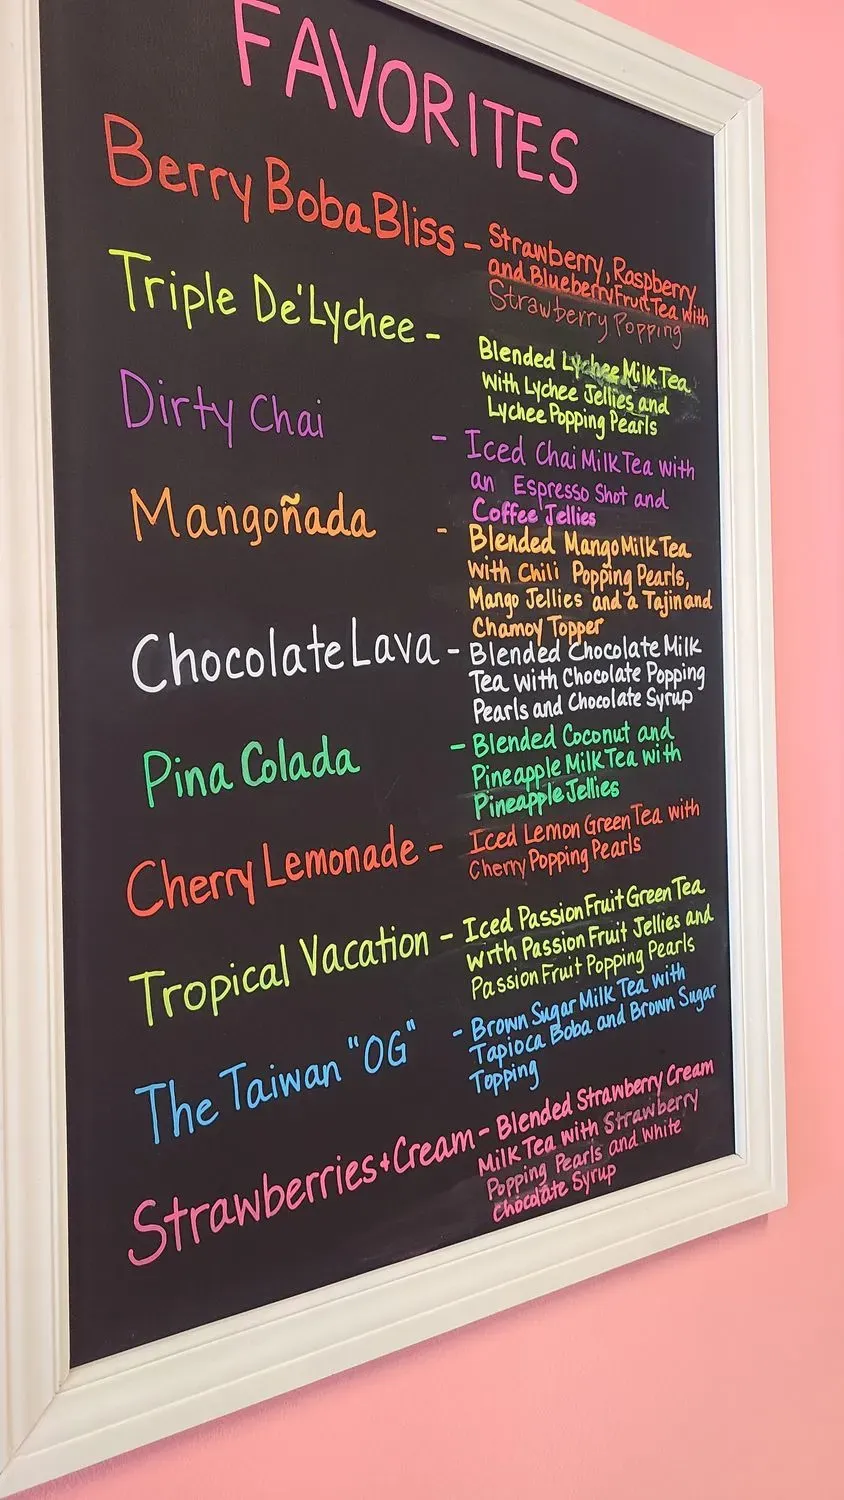 FAVORITES
Berry Boba Bliss - Strawberry, Raspberry
and Blueberry Fruit Tea with
Strawberry Popping
Triple De'Lychee -
Blended Lychee Milk Tea
with Lychee Jellies and
Lychee Popping Pearls
Dirty Chai - Iced Chai Milk Tea with
an Espresso Shot and
Coffee Jellies
Mangoñada - Blended Mango Milk Tea
with Chili Popping Pearls,
Mango Jellies and a Tajin and
Chamoy Topper
Chocolate Lava - Blended Chocolate Milk
Tea with Chocolate Popping
Pearls and Chocolate Syrup
Pina Colada - Blended Coconut and
Pineapple Milk Tea with
Pineapple Jellies
Cherry Lemonade - Iced Lemon Green Tea with
Cherry Popping Pearls
Tropical Vacation - Iced Passion Fruit Green Tea
with Passion Fruit Jellies and
Passion Fruit Popping Pearls
The Taiwan "OG" - Brown Sugar Milk Tea with
Tapioca Boba and Brown Sugar
Topping
Strawberries + Cream - Blended Strawberry Cream
Milk Tea with Strawberry
Popping Pearls and white
Chocolate Syrup